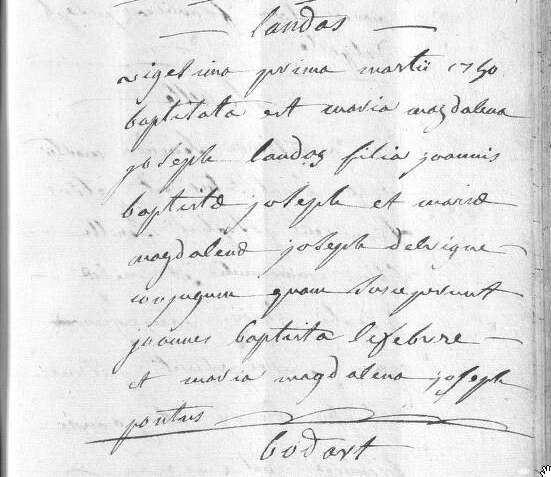 landas
vigesima prima martii 1750
baptisata est maria magdalena
joseph landas filia joannis
baptistæ joseph et mariæ
magdalenæ joseph delvigne
conjugum quam susceperunt
joannes baptista lefebvre
et maria magdalena joseph
pontus
bodart